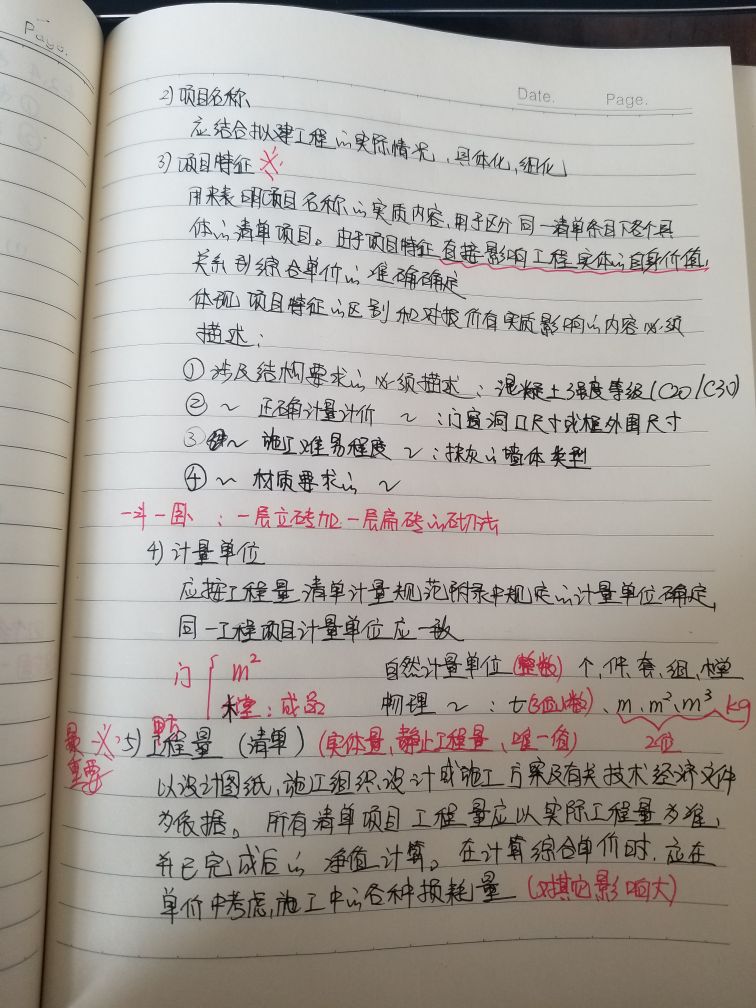 Page.
Date. Page.
2) 项目名称
应结合拟建工程的实际情况、具体化,细化
3) 项目特征 ※
用来表明项目名称的实质内容,用于区分同一清单条目下各个具
体的清单项目。由于项目特征直接影响工程实体的自身价值,
关系到综合单价的准确确定
体现项目特征的区别和对报价有实质影响的内容必须
描述:
① 涉及结构要求的必须描述:混凝土强度等级(C20/C30)
② ~ 正确计量计价 ~ :门窗洞口尺寸或框外围尺寸
③ ~ 施工难易程度 ~ :抹灰的墙体类型
④ ~ 材质要求的 ~
一斗一卧 :一层立砖加一层扁砖的砌法
4) 计量单位
应按工程量清单计量规范附录中规定的计量单位确定,
同一工程项目计量单位应一致
门 { m² 自然计量单位(整数)个,件、套、组、樘
樘:成品 物理 ~ :t(3位小数)、m、m²、m³ kg
2位
最重要 ※ 5) 工程量(清单)(实体量、静止工程量、唯一值)
以设计图纸,施工组织,设计或施工方案及有关技术经济文件
为依据。所有清单项目工程量应以实际工程量为准,
并已完成后的净值计算。在计算综合单价时,应在
单价中考虑,施工中的各种损耗量(对其它影响大)